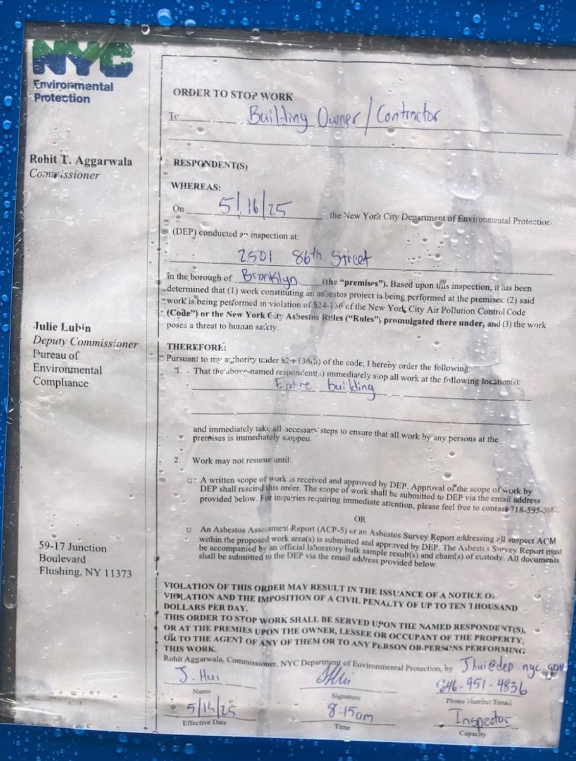 NYC
Environmental
Protection
Rohit T. Aggarwala
Commissioner
Julie Lubin
Deputy Commissioner
Bureau of
Environmental
Compliance
59-17 Junction
Boulevard
Flushing, NY 11373
ORDER TO STOP WORK
To Building Owner/Contractor
RESPONDENT(S)
WHEREAS:
On 5/16/25 the New York City Department of Environmental Protection
(DEP) conducted an inspection at:
2501 86th Street
in the borough of Brooklyn (the “premises”). Based upon this inspection, it has been
determined that (1) work constituting an asbestos project is being performed at the premises; (2) said
work is being performed in violation of §24-136 of the New York City Air Pollution Control Code
(“Code”) or the New York City Asbestos Rules (“Rules”) promulgated there under, and (3) the work
poses a threat to human safety.
THEREFORE:
Pursuant to my authority under §24-136(h) of the code, I hereby order the following:
1. That the above-named respondent(s) immediately stop all work at the following location(s):
Entire building
and immediately take all necessary steps to ensure that all work by any persons at the
premises is immediately stopped.
2. Work may not resume until:
□ A written scope of work is received and approved by DEP. Approval of the scope of work by
DEP shall rescind this order. The scope of work shall be submitted to DEP via the email address
provided below. For inquiries requiring immediate attention, please feel free to contact
OR
□ An Asbestos Assessment Report (ACP-5) or an Asbestos Survey Report addressing all suspect ACM
within the proposed work area(s) is submitted and approved by DEP. The Asbestos Survey Report must
be accompanied by an official laboratory bulk sample result(s) and chain(s) of custody. All documents
shall be submitted to the DEP via the email address provided below.
VIOLATION OF THIS ORDER MAY RESULT IN THE ISSUANCE OF A NOTICE OF
VIOLATION AND THE IMPOSITION OF A CIVIL PENALTY OF UP TO TEN THOUSAND
DOLLARS PER DAY.
THIS ORDER TO STOP WORK SHALL BE SERVED UPON THE NAMED RESPONDENT(S),
OR AT THE PREMISES UPON THE OWNER, LESSEE OR OCCUPANT OF THE PROPERTY,
OR TO THE AGENT OF ANY OF THEM OR TO ANY PERSON OR PERSONS PERFORMING
THIS WORK.
Rohit Aggarwala, Commissioner, NYC Department of Environmental Protection, by Jhui@dep.nyc.gov
J. Hui 646-951-4836
Name Signature Phone Number/Email
5/16/25 8:15am Inspector
Effective Date Time Capacity